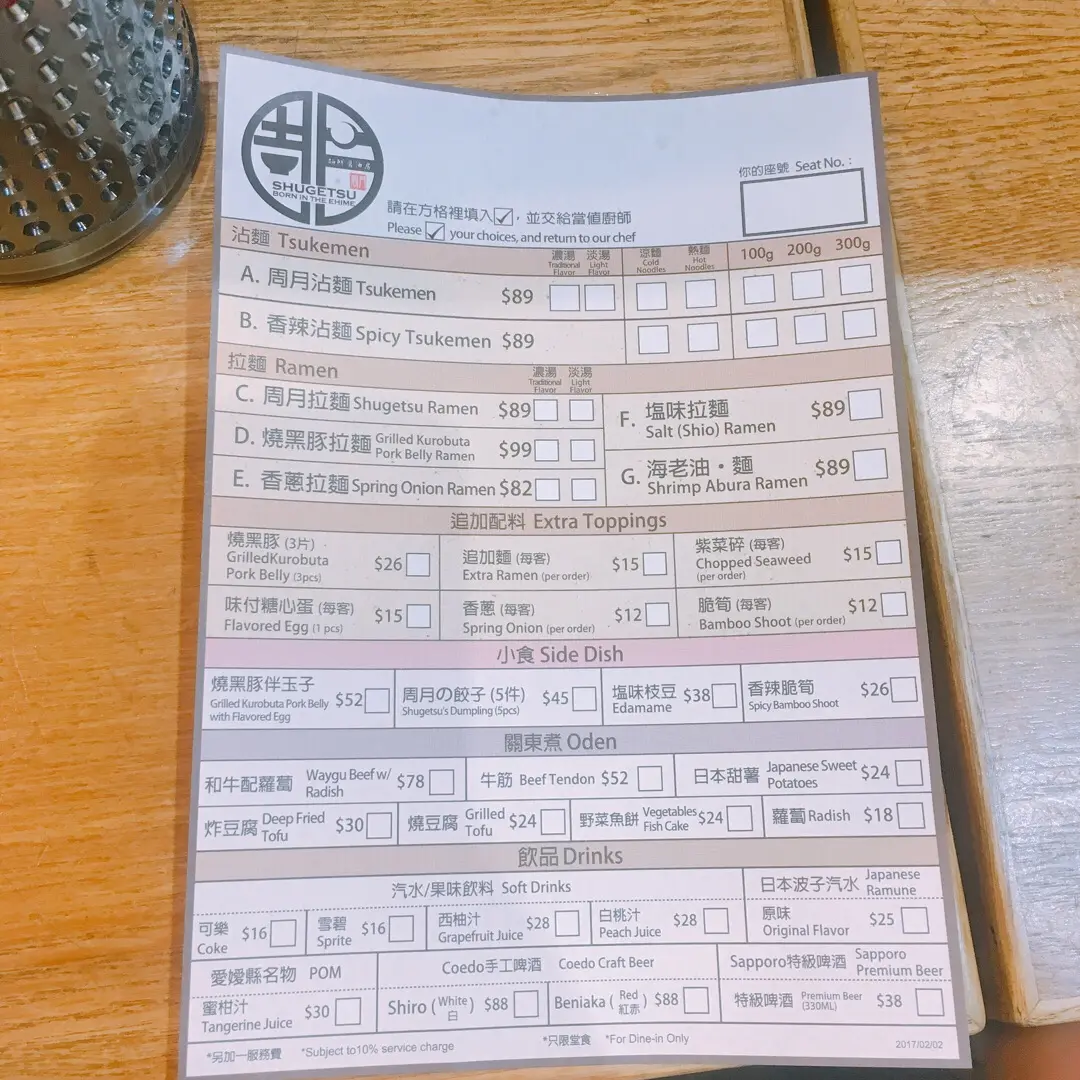 SHUGETSU
BORN IN THE EHIME
你的座號 Seat No. :
請在方格裡填入☑，並交給當值廚師
Please ☑ your choices, and return to our chef
沾麵 Tsukemen 濃湯 Traditional Flavor 淡湯 Light Flavor 涼麵 Cold Noodles 熱麵 Hot Noodles 100g 200g 300g
A. 周月沾麵 Tsukemen $89
B. 香辣沾麵 Spicy Tsukemen $89
拉麵 Ramen 濃湯 Traditional Flavor 淡湯 Light Flavor
C. 周月拉麵 Shugetsu Ramen $89
D. 燒黑豚拉麵 Grilled Kurobuta Pork Belly Ramen $99
E. 香蔥拉麵 Spring Onion Ramen $82
F. 塩味拉麵 Salt (Shio) Ramen $89
G. 海老油・麵 Shrimp Abura Ramen $89
追加配料 Extra Toppings
燒黑豚 (3片) GrilledKurobuta Pork Belly (3pcs) $26
追加麵 (每客) Extra Ramen (per order) $15
紫菜碎 (每客) Chopped Seaweed (per order) $15
味付糖心蛋 (每客) Flavored Egg (1 pcs) $15
香蔥 (每客) Spring Onion (per order) $12
脆筍 (每客) Bamboo Shoot (per order) $12
小食 Side Dish
燒黑豚伴玉子 Grilled Kurobuta Pork Belly with Flavored Egg $52
周月の餃子 (5件) Shugetsu's Dumpling (5pcs) $45
塩味枝豆 Edamame $38
香辣脆筍 Spicy Bamboo Shoot $26
關東煮 Oden
和牛配蘿蔔 Waygu Beef w/ Radish $78
牛筋 Beef Tendon $52
日本甜薯 Japanese Sweet Potatoes $24
炸豆腐 Deep Fried Tofu $30
燒豆腐 Grilled Tofu $24
野菜魚餅 Vegetables Fish Cake $24
蘿蔔 Radish $18
飲品 Drinks
汽水/果味飲料 Soft Drinks
日本波子汽水 Japanese Ramune
可樂 Coke $16
雪碧 Sprite $16
西柚汁 Grapefruit Juice $28
白桃汁 Peach Juice $28
原味 Original Flavor $25
愛媛縣名物 POM
Coedo手工啤酒 Coedo Craft Beer
Sapporo特級啤酒 Sapporo Premium Beer
蜜柑汁 Tangerine Juice $30
Shiro (White 白) $88
Beniaka (Red 紅赤) $88
特級啤酒 Premium Beer (330ML) $38
*另加一服務費 *Subject to10% service charge *只限堂食 *For Dine-in Only 2017/02/02